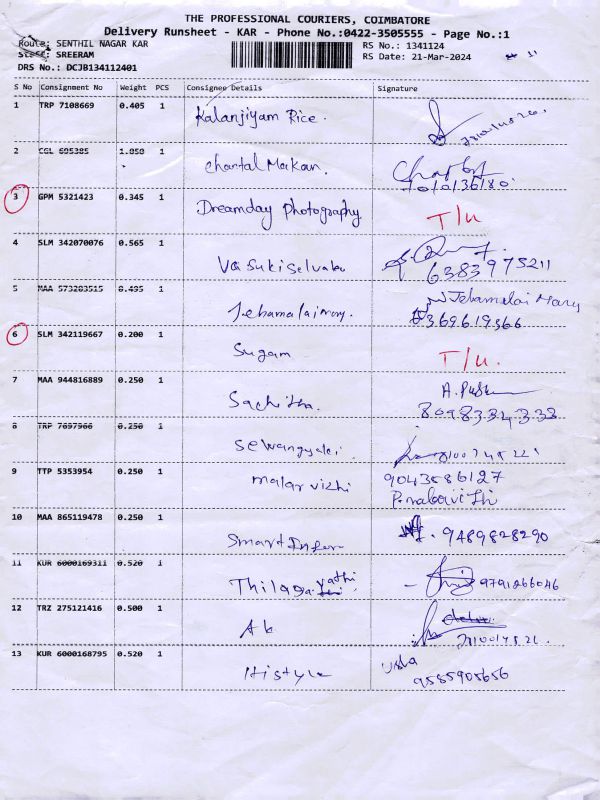 THE PROFESSIONAL COURIERS, COIMBATORE
Delivery Runsheet - KAR - Phone No.:0422-3505555 - Page No.:1
Route: SENTHIL NAGAR KAR RS No.: 1341124
SREERAM RS Date: 21-Mar-2024
DRS No.: DCJB134112401
S No Consignment No Weight PCS Consignee Details Signature
1 TRP 7108669 0.405 1 Kalanjiyam Rice.
2 CGL 605385 1.050 1 Chantal Maikan.
7010136180.
3 GPM 5321423 0.345 1 Dreamday Photography T/U
4 SLM 342070076 0.565 1 Vasukiselvabu
6383975211
5 MAA 573203515 0.495 1 Jebamalaimary. Jebamalai Mary
8369619366
6 SLM 342119667 0.200 1 Sugam T/U.
7 MAA 944816889 0.250 1 Sachitha.
8098334333
8 TRP 7697966 0.250 1
9 TTP 5353954 0.250 1 malar vizhi 9043586127
10 MAA 865119478 0.250 1 9489828290
11 KUR 6000169311 0.520 1 Thilagavathi 9791266046
12 TRZ 275121416 0.500 1 Ak
13 KUR 6000168795 0.520 1 Histyle Usha
9585905656